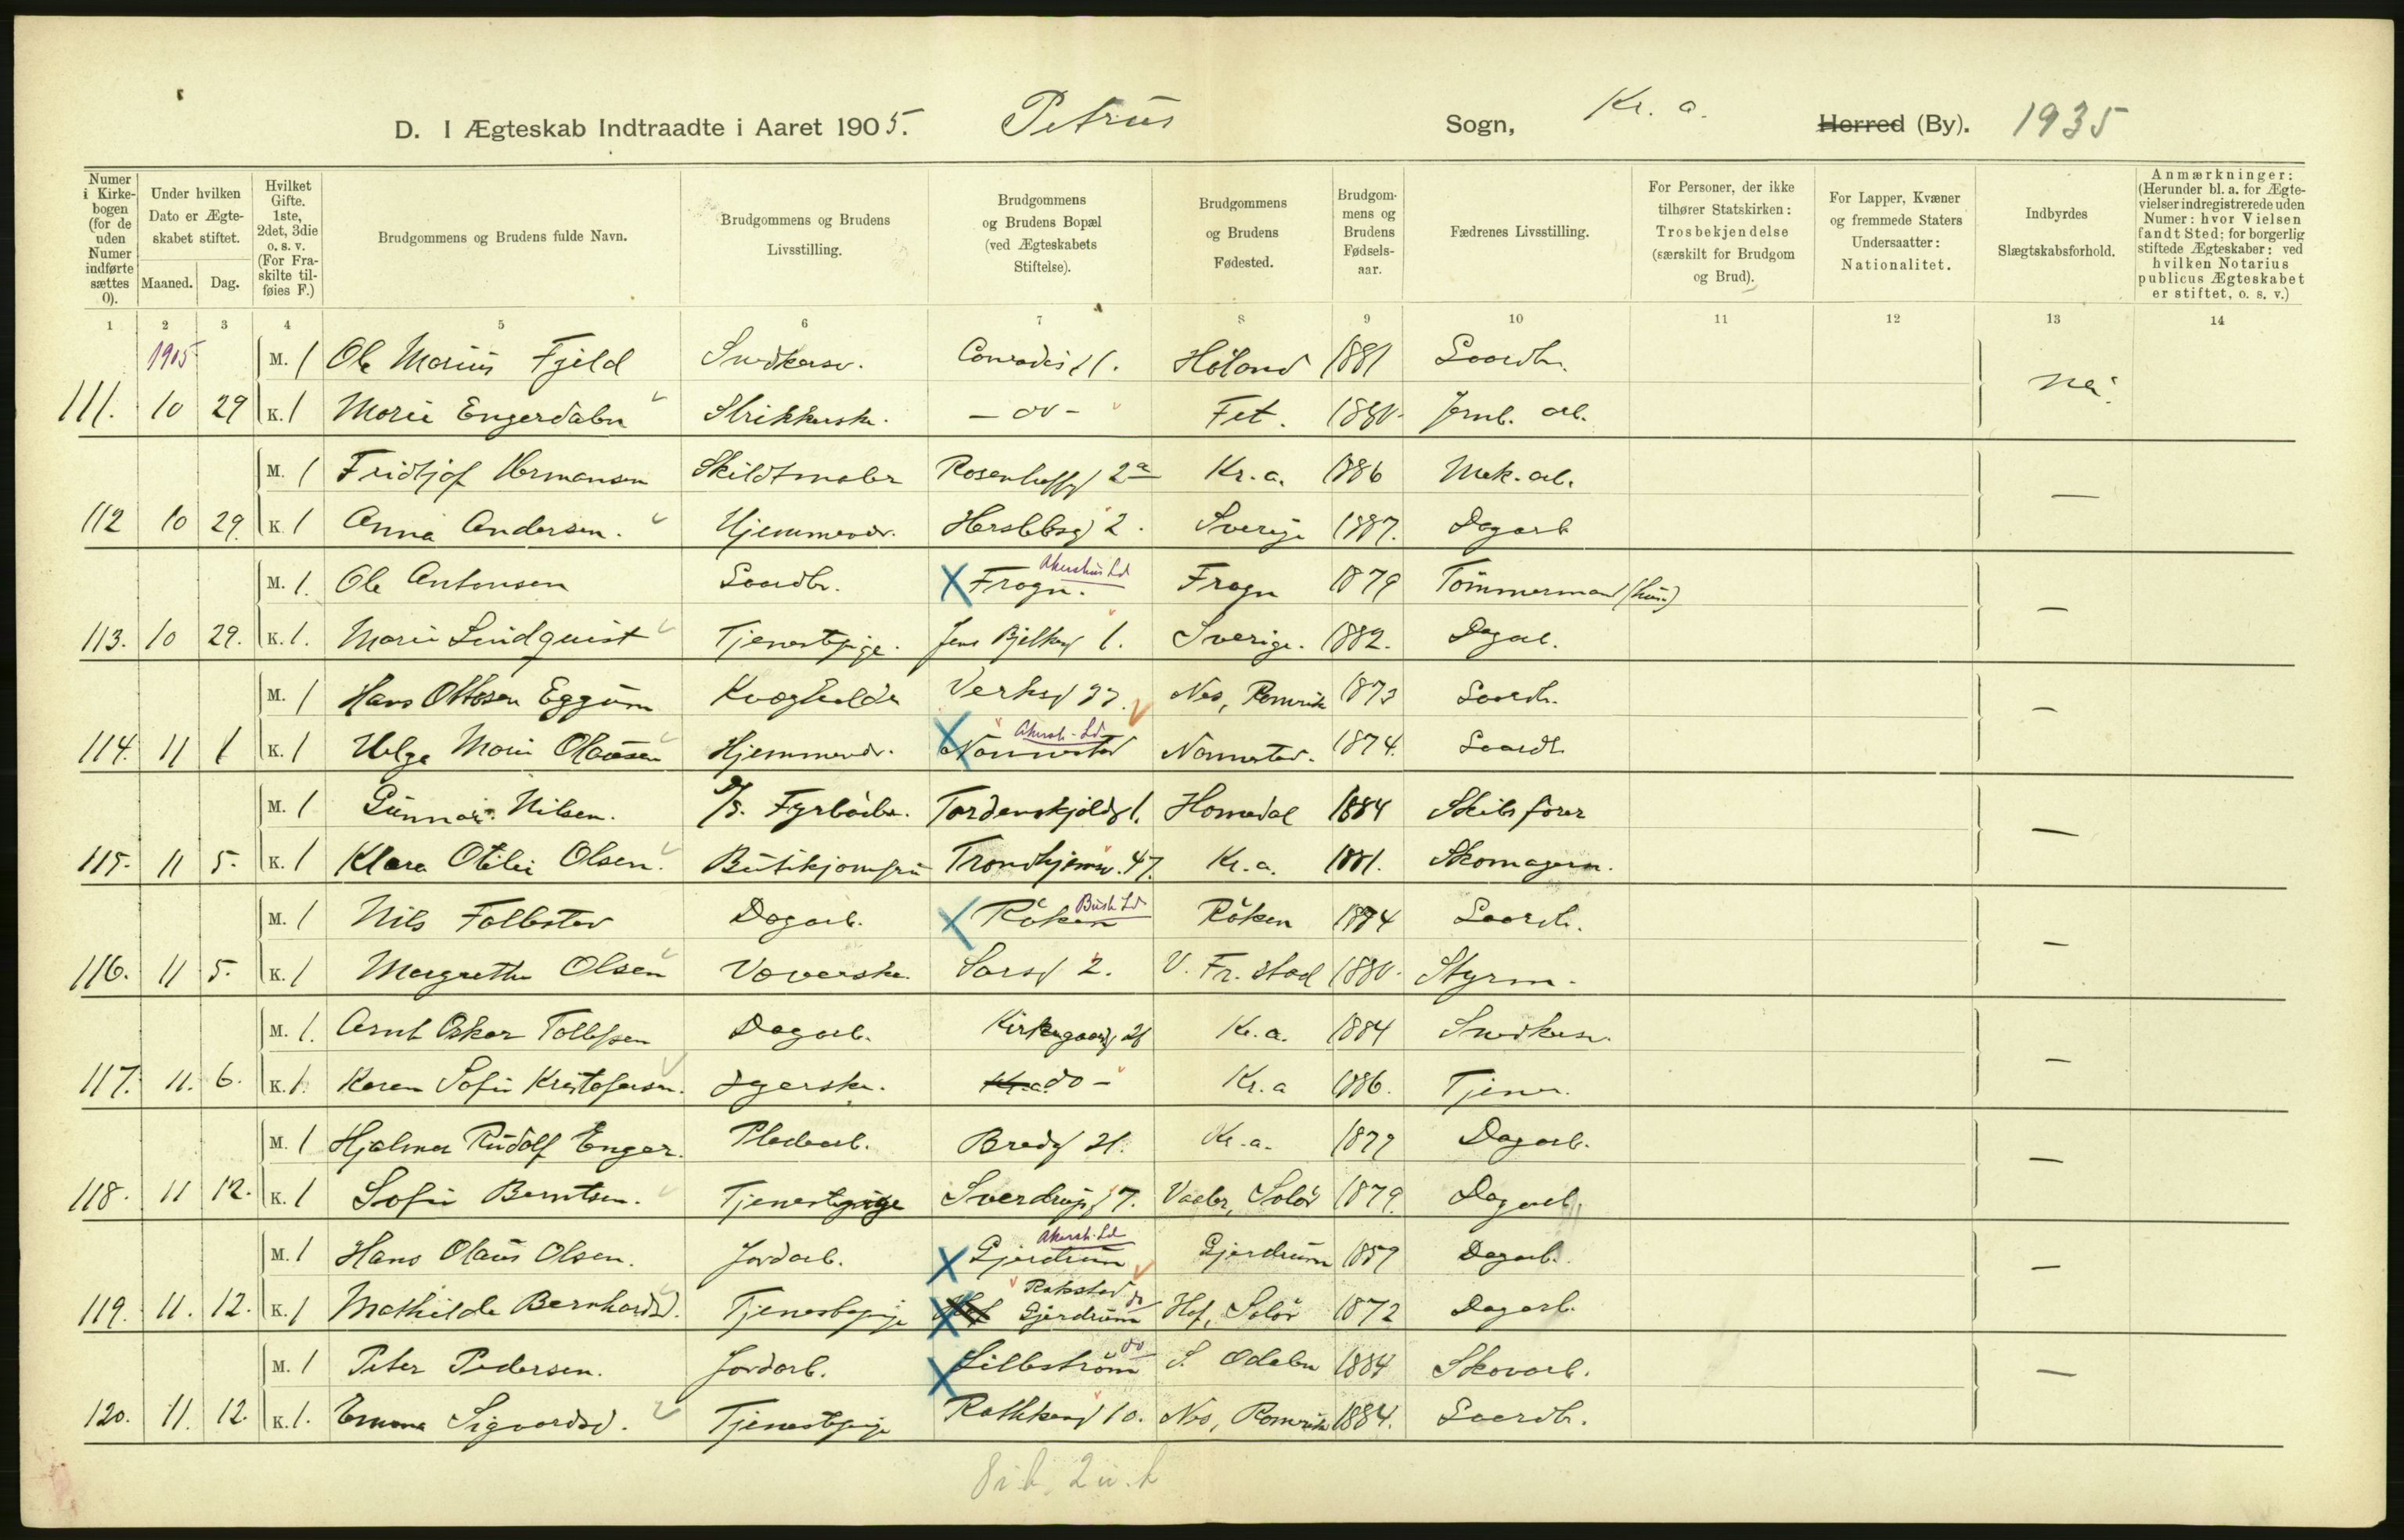 D. I Ægteskab Indtraadte i Aaret 1905. Petrus Sogn, Kr. a. Herred (By). 1935
Numer i Kirkebogen (for de uden Numer indførte sættes 0).
Under hvilken Dato er Ægteskabet stiftet.
Maaned. Dag.
Hvilket Gifte. 1ste, 2det, 3die o. s. v. (For Fraskilte tilføies F.)
Brudgommens og Brudens fulde Navn.
Brudgommens og Brudens Livsstilling.
Brudgommens og Brudens Bopæl (ved Ægteskabets Stiftelse).
Brudgommens og Brudens Fødested.
Brudgommens og Brudens Fødselsaar.
Fædrenes Livsstilling.
For Personer, der ikke tilhører Statskirken: Trosbekjendelse (særskilt for Brudgom og Brud).
For Lapper, Kvæner og fremmede Staters Undersaatter: Nationalitet.
Indbyrdes Slægtskabsforhold.
Anmærkninger: (Herunder bl. a. for Ægtevielser indregistrerede uden Numer: hvor Vielsen fandt Sted; for borgerlig stiftede Ægteskaber: ved hvilken Notarius publicus Ægteskabet er stiftet, o. s. v.)
1 2 3 4 5 6 7 8 9 10 11 12 13 14
1905 M. 1 Ole Marius Fjeld Snedkersv. Conradis g. 1. Höland 1881 Gaardbr. nei.
111. 10 29 K. 1 Marie Engerdalen Strikkerske. - do - Fet. 1880. Jernb. arb.
M. 1 Fridtjof Hermansen Skildtmaler Rosenhoffg 2a Kr. a. 1886 Mek. arb. —
112 10 29. K. 1 Anna Andersen. Hjemmevær. Herslebsg 2. Sverige 1887. Dagarb
M. 1. Ole Antonsen Gaardbr. Frogn. Akershus Ld Frogn 1879 Tömmermand (hus) —
113. 10 29. K. 1. Marie Lindquist Tjenestpige. Jens Bjelkesg 1. Sverige. 1882. Dagarb.
M. 1 Hans Ottesen Eggum Kvægholder Verksg 37. Nes, Romerike 1873 Gaardbr. —
114. 11 1 K. 1 Helga Marie Olausen Hjemmevær. Nannestad Akersh. Ld Nannestad. 1874. Gaardbr.
M. 1 Gunnar Nilsen. D/S. Fyrböder. Tordenskjoldsg 1. Homedal 1884 Skibsförer —
115. 11 5. K. 1 Klara Otilie Olsen. Butikjomfru Trondhjemsv. 47. Kr. a. 1881. Skomagerm.
M. 1 Nils Follestad Dagarb. Röken Busk Ld Röken 1874 Gaardbr. —
116. 11 5. K. 1 Margrethe Olsen Væverske. Sarsg 2. V. Fr. stad 1880. Styrm.
M. 1. Arnt Oskar Tollefsen Dagarb. Kirkegaardsg 26 Kr. a. 1884 Snedkersv. —
117. 11. 6. K. 1. Karen Sofie Kristofersen. Syerske. Kr. a. do - Kr. a 1886. Tjener.
M. 1 Hjalmar Rudolf Enger. Pladearb. Bredg 21. Kr. a. 1879 Dagarb. —
118. 11 12. K. 1 Sofie Berntsen. Tjenestpige Sverdrupsg 7. Vaaler, Solör 1879. Dagarb.
M. 1 Hans Olaus Olsen. Jordarb. Gjerdrum Akersh. Ld Gjerdrum 1859 Dagarb. —
119. 11. 12. K. 1 Mathilde Bernhardsd. Tjenestepige Hof Rakstad Gjerdrum do Hof, Solör 1872 Dagarb.
M. 1 Peter Pedersen. Jordarb. Lilleström do S. Odalen 1884 Skovarb. —
120. 11. 12. K. 1. Emma Sigvardsd. Tjenestpige Rathkesg 10. Nes, Romerike 1884. Gaardbr.